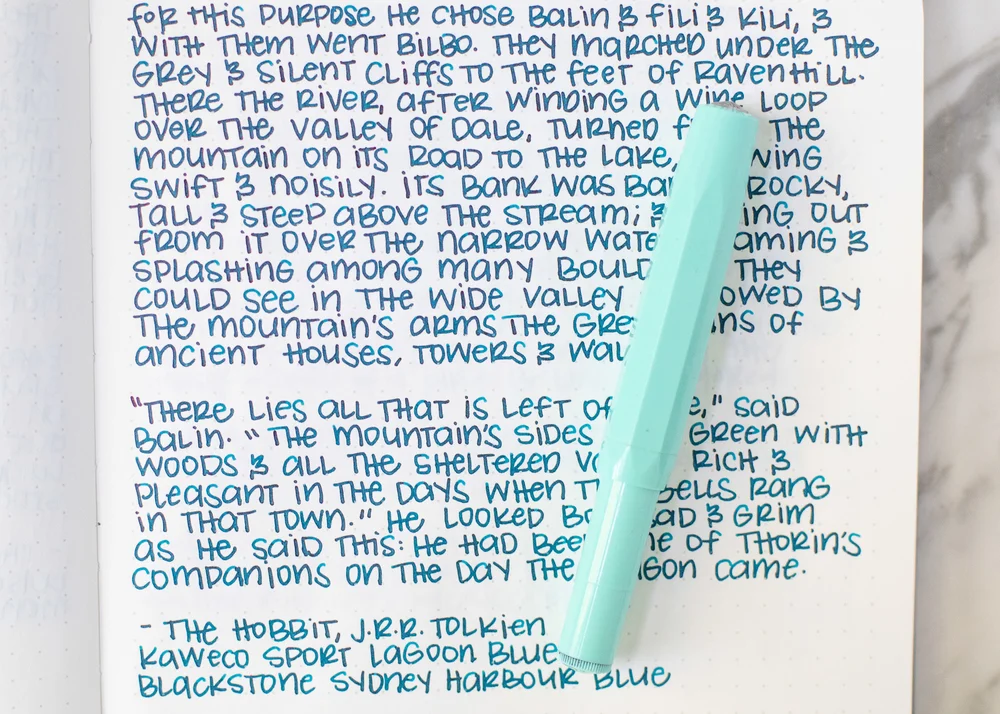 for this purpose he chose Balin & Fili & Kili, &
with them went Bilbo. They marched under the
grey & silent cliffs to the feet of Ravenhill.
There the river, after winding a wide loop
over the valley of Dale, turned the
mountain on its road to the lake,
swift & noisily. Its bank was rocky,
tall & steep above the stream; & out
from it over the narrow &
splashing among many they
could see in the wide valley by
the mountain's arms the of
ancient houses, towers &
"There lies all that is left of said
Balin. "The mountain's sides green with
woods & all the sheltered rich &
pleasant in the days when bells rang
in that town." He looked & grim
as he said this: he had of Thorin's
companions on the day the came.
- The Hobbit, J.R.R. Tolkien
Kaweco Sport Lagoon Blue
Blackstone Sydney Harbour Blue